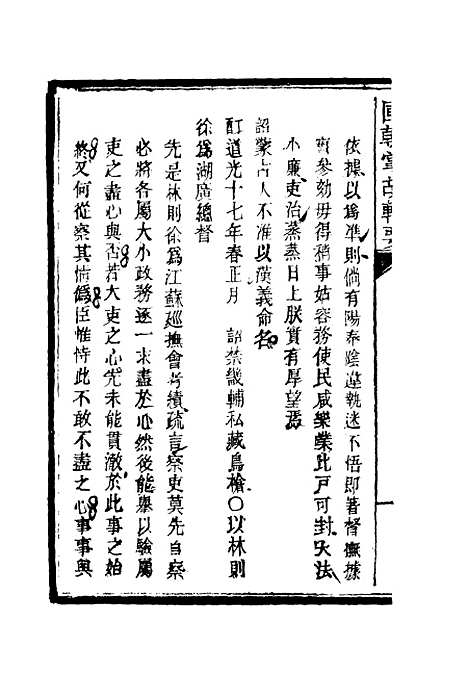 國朝掌故輯要
依據以爲準則倘有陽奉陰違執迷不悟即著督撫據
實參劾毋得稍事姑容務使民咸樂業比戶可封大法
小廉吏治蒸蒸日上朕實有厚望焉
詔蒙古人不准以漢義命名
酊道光十七年春正月 詔禁畿輔私藏鳥槍〇以林則
徐爲湖廣總督
先是林則徐爲江蘇巡撫會考績疏言察吏莫先自察
必將各屬大小政務逐一求盡於心然後能舉以驗屬
吏之盡心與否若大吏之心先未能貫澈於此事之始
終又何從察其情僞臣惟恃此不敢不盡之心事事與
一